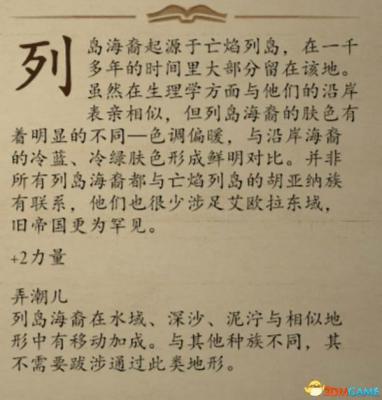 列岛海裔起源于亡焰列岛，在一千
多年的时间里大部分留在该地。
虽然在生理学方面与他们的沿岸
表亲相似，但列岛海裔的肤色有
着明显的不同—色调偏暖，与沿岸海裔
的冷蓝、冷绿肤色形成鲜明对比。并非
所有列岛海裔都与亡焰列岛的胡亚纳族
有联系，他们也很少涉足艾欧拉东域，
旧帝国更为罕见。
+2力量
弄潮儿
列岛海裔在水域、深沙、泥泞与相似地
形中有移动加成。与其他种族不同，其
不需要跋涉通过此类地形。
3DMGAME